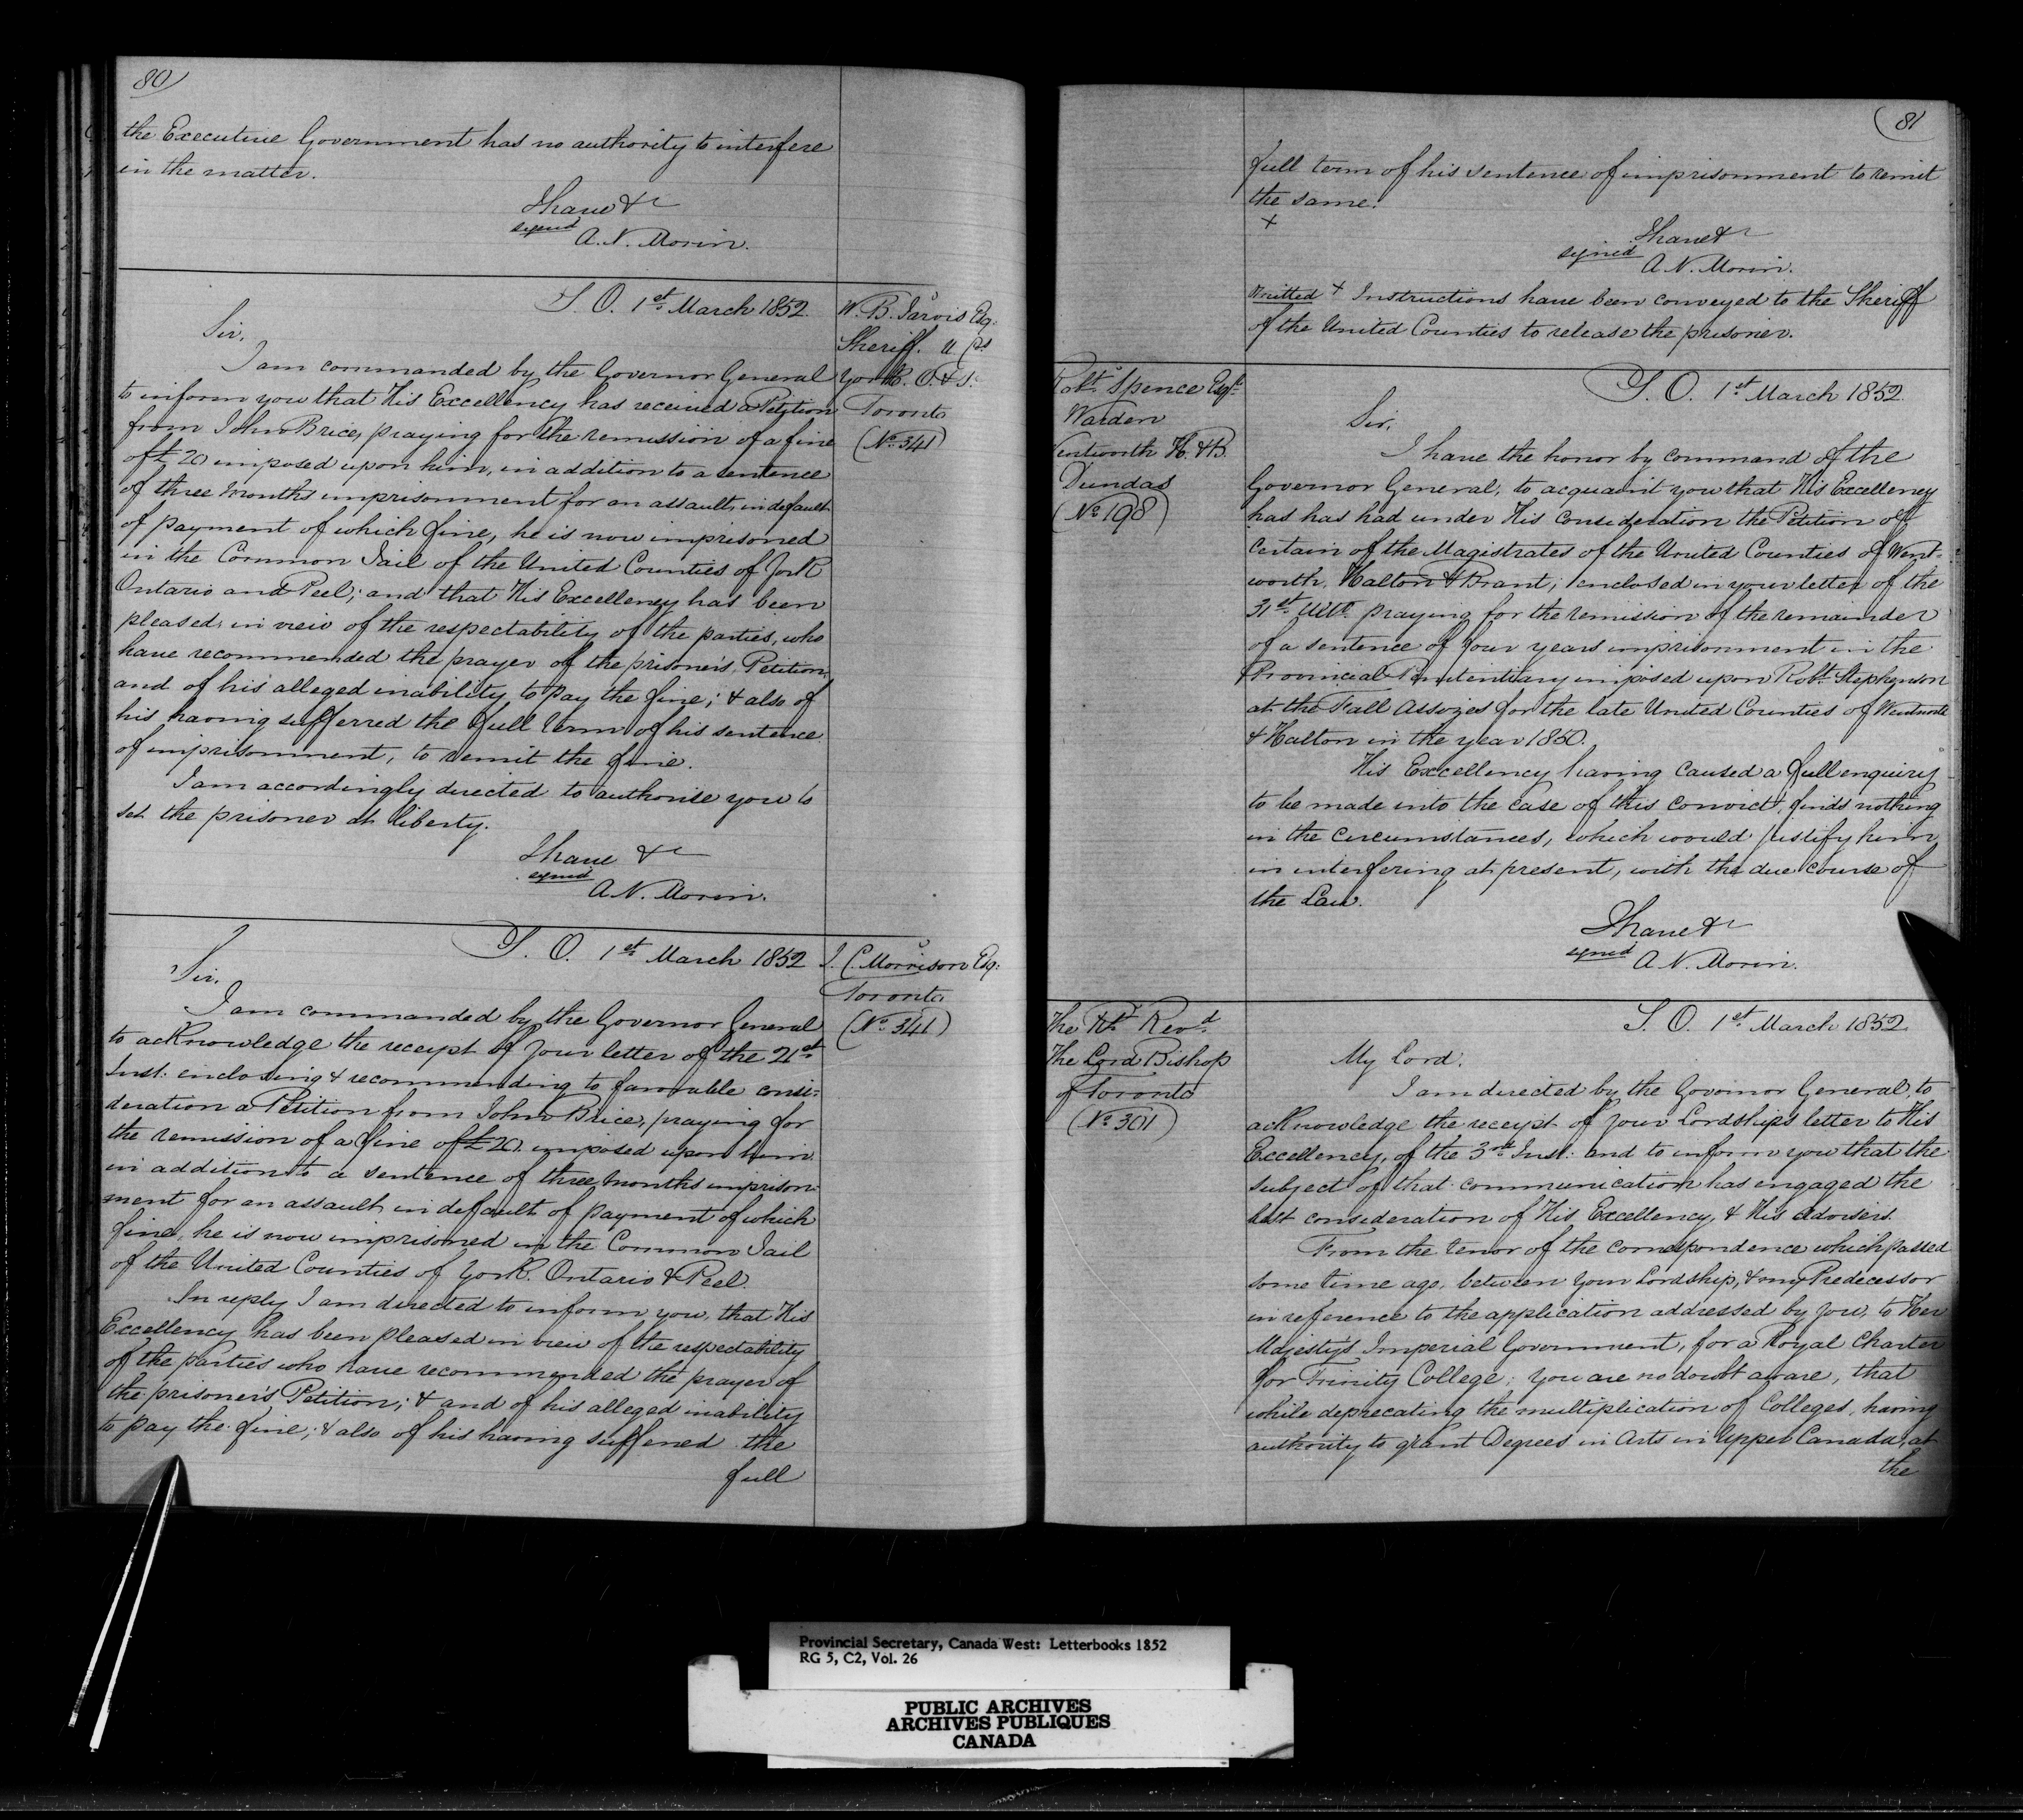 80
the Executive Government has no authority to interfere
in the matter.
I have &c
signed
A. N. Morin.
S. O. 1st March 1852.
W. B. Jarvis Esqr
Sheriff. U. Cs
York. O. & P.
Toronto
(No 341)
Sir,
I am commanded by the Governor General
to inform you that His Excellency has received a Petition
from John Brice, praying for the remission of a fine
of £20 imposed upon him, in addition to a sentence
of three months imprisonment for an assault, in default
of payment of which fine, he is now imprisoned
in the Common Jail of the United Counties of York
Ontario and Peel; and that His Excellency has been
pleased, in view of the respectability of the parties, who
have recommended the prayer of the prisoner's Petition,
and of his alleged inability to pay the fine; & also of
his having sufferred the full term of his sentence
of imprisonment, to remit the fine.
I am accordingly directed to authorise you to
set the prisoner at liberty.
I have &c
signed
A. N. Morin.
S. O. 1st March 1852
J. C. Morrison Esqr
Toronto
(No 341)
Sir,
I am commanded by the Governor General
to acknowledge the receipt of your letter of the 21st
Inst: enclosing & recommending to favorable consi-
deration a Petition from John Brice, praying for
the remission of a fine of £20. imposed upon him
in addition to a sentence of three months imprison-
ment for an assault in default of payment of which
fine, he is now imprisoned in the Common Jail
of the United Counties of York. Ontario & Peel.
In reply I am directed to inform you, that His
Excellency has been pleased in view of the respectability
of the parties who have recommended the prayer of
the prisoner's Petition; & and of his alleged inability
to pay the fine; & also of his having suffered the
full
81
full term of his sentence of imprisonment to remit
the same.
+
I have &c
signed
A. N. Morin.
Omitted + Instructions have been conveyed to the Sheriff
of the United Counties to release the prisoner.
Robt Spence Esqr
Warden
Wentworth H. & B.
Dundas
(No 198)
S. O. 1st March 1852.
Sir,
I have the honor by command of the
Governor General, to acquaint you that His Excellency
has has had under His consideration the Petition of
Certain of the Magistrates of the United Counties of Went-
worth, Halton & Brant; enclosed in your letter of the
31st Ulto praying for the remission of the remainder
of a sentence of four years imprisonment in the
Provincial Penitentiary imposed upon Robt Stephenson
at the Fall Assozes for the late United Counties of Wentworth
& Halton in the year 1850.
His Exccellency having caused a full enquiry
to be made into the case of this convict, finds nothing
in the circumstances, which would justify him
in interfering at present, with the due course of
the Law.
I have &c
signed
A. N. Morin.
The Rt Revd
The Lord Bishop
of Toronto
(No 301)
S. O. 1st March 1852
My Lord.
I am directed by the Govornor General, to
acknowledge the receipt of your Lordships letter to His
Excellency, of the 3rd Inst: and to inform you that the
subject of that communication has engaged the
best consideration of His Excellency, & His advisers.
From the tenor of the correspondence which passed
some time ago, between your Lordship, & my Predecessor
in reference to the application addressed by you, to Her
Majesty's Imperial Government, for a Royal Charter
for Trinity College; you are no doubt aware, that
while deprecating the multiplication of Colleges, having
authority to grant Degrees in Arts in Upper Canada, at
the
Provincial Secretary, Canada West: Letterbooks 1852
RG 5, C2, Vol. 26
PUBLIC ARCHIVES
ARCHIVES PUBLIQUES
CANADA